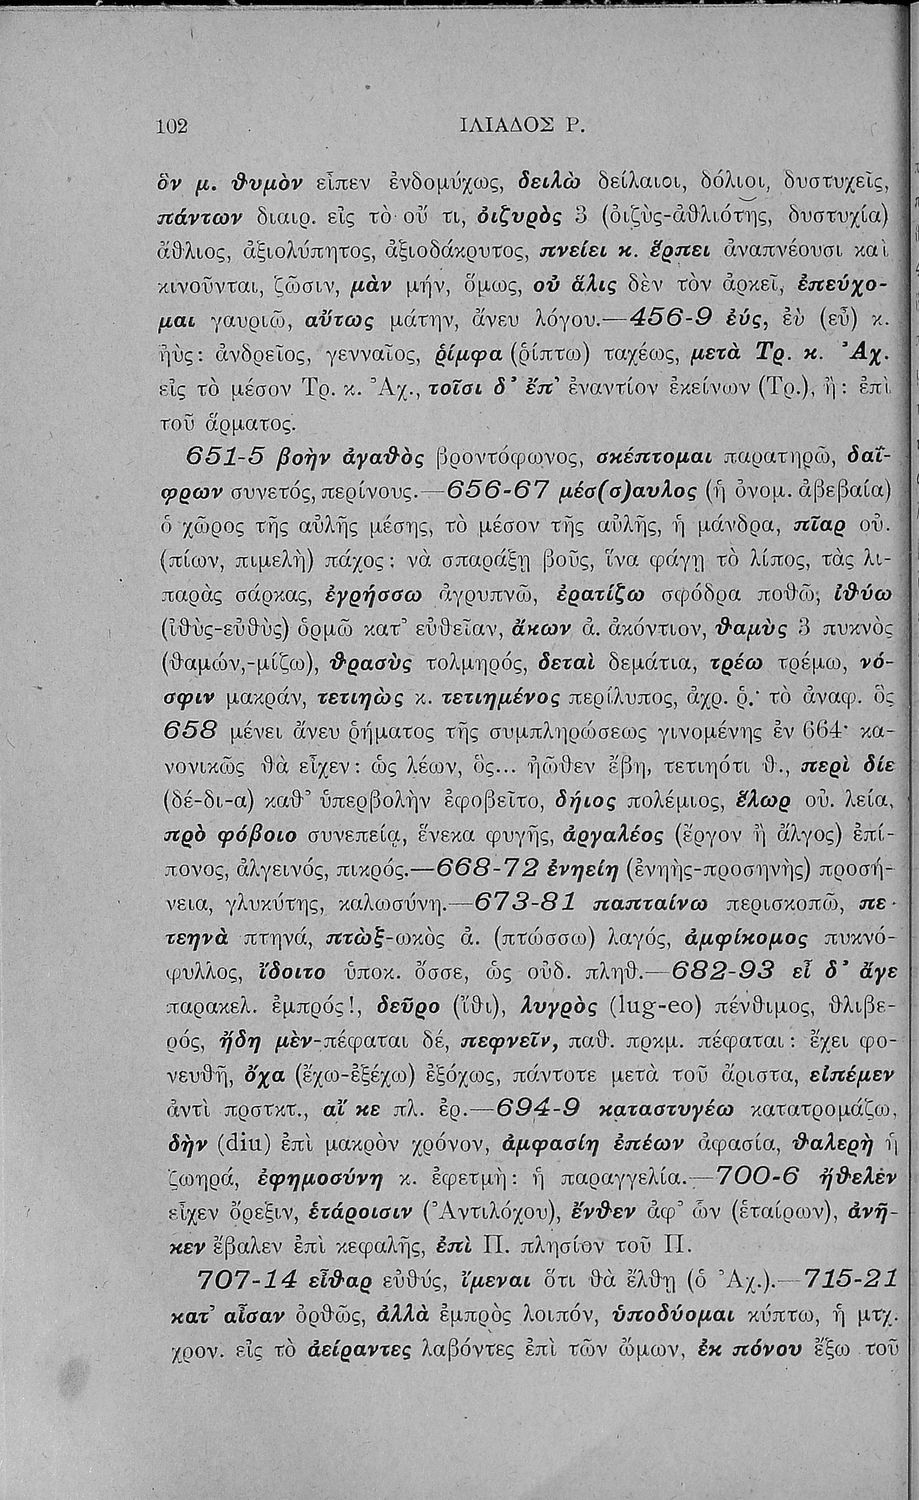 102 ΙΛΙΑΔΟΣ Ρ.
ὃν μ. θυμὸν εἶπεν ἐνδομύχως, δειλὼ δείλαιοι, δόλιοι, δυστυχεῖς,
πάντων διαιρ. εἰς τὸ οὔ τι, ὀιζυρὸς 3 (ὀιζὺς-ἀθλιότης, δυστυχία)
ἄθλιος, ἀξιολύπητος, ἀξιοδάκρυτος, πνείει κ. ἕρπει ἀναπνέουσι καὶ
κινοῦνται, ζῶσιν, μὰν μήν, ὅμως, οὐ ἅλις δὲν τὸν ἀρκεῖ, ἐπεύχο-
μαι γαυριῶ, αὔτως μάτην, ἄνευ λόγου.—456-9 ἐύς, ἐὺ (εὖ) κ.
ἠὺς: ἀνδρεῖος, γενναῖος, ῥίμφα (ῥίπτω) ταχέως, μετὰ Τρ. κ. Ἀχ.
εἰς τὸ μέσον Τρ. κ. Ἀχ., τοῖσι δ' ἔπ' ἐναντίον ἐκείνων (Τρ.), ἢ: ἐπὶ
τοῦ ἅρματος.
651-5 βοὴν ἀγαθὸς βροντόφωνος, σκέπτομαι παρατηρῶ, δαΐ-
φρων συνετός, περίνους.—656-67 μέσ(σ)αυλος (ἡ ὀνομ. ἀβεβαία)
ὁ χῶρος τῆς αὐλῆς μέσης, τὸ μέσον τῆς αὐλῆς, ἡ μάνδρα, πῖαρ οὐ.
(πίων, πιμελὴ) πάχος: νὰ σπαράξῃ βοῦς, ἵνα φάγῃ τὸ λίπος, τὰς λι-
παρὰς σάρκας, ἐγρήσσω ἀγρυπνῶ, ἐρατίζω σφόδρα ποθῶ, ἰθύω
(ἰθὺς-εὐθὺς) ὁρμῶ κατ' εὐθεῖαν, ἄκων ἀ. ἀκόντιον, θαμὺς 3 πυκνὸς
(θαμών,-μίζω), θρασὺς τολμηρός, δεταὶ δεμάτια, τρέω τρέμω, νό-
σφιν μακράν, τετιηὼς κ. τετιημένος περίλυπος, ἀχρ. ῥ.· τὸ ἀναφ. ὃς
658 μένει ἄνευ ῥήματος τῆς συμπληρώσεως γινομένης ἐν 664· κα-
νονικῶς θὰ εἶχεν: ὡς λέων, ὃς... ἠῶθεν ἔβη, τετιηότι θ., περὶ δίε
(δέ-δι-α) καθ' ὑπερβολὴν ἐφοβεῖτο, δήιος πολέμιος, ἕλωρ οὐ. λεία,
πρὸ φόβοιο συνεπείᾳ, ἕνεκα φυγῆς, ἀργαλέος (ἔργον ἢ ἄλγος) ἐπί-
πονος, ἀλγεινός, πικρός.—668-72 ἐνηείη (ἐνηὴς-προσηνὴς) προσή-
νεια, γλυκύτης, καλωσύνη.—673-81 παπταίνω περισκοπῶ, πε-
τεηνὰ πτηνά, πτὼξ-ωκὸς ἀ. (πτώσσω) λαγός, ἀμφίκομος πυκνό-
φυλλος, ἴδοιτο ὑποκ. ὄσσε, ὡς οὐδ. πληθ.—682-93 εἰ δ' ἄγε
παρακελ. ἐμπρός!, δεῦρο (ἴθι), λυγρὸς (lug-eo) πένθιμος, θλιβε-
ρός, ἤδη μὲν-πέφαται δέ, πεφνεῖν, παθ. πρκμ. πέφαται: ἔχει φο-
νευθῆ, ὄχα (ἔχω-ἐξέχω) ἐξόχως, πάντοτε μετὰ τοῦ ἄριστα, εἰπέμεν
ἀντὶ προτκτ., αἴ κε πλ. ἐρ.—694-9 καταστυγέω κατατρομάζω,
δὴν (diu) ἐπὶ μακρὸν χρόνον, ἀμφασίη ἐπέων ἀφασία, θαλερὴ ἡ
ζωηρά, ἐφημοσύνη κ. ἐφετμὴ: ἡ παραγγελία.—700-6 ἤθελέν
εἶχεν ὄρεξιν, ἑτάροισιν (Ἀντιλόχου), ἔνθεν ἀφ' ὧν (ἑταίρων), ἀνῆ-
κεν ἔβαλεν ἐπὶ κεφαλῆς, ἐπὶ Π. πλησίον τοῦ Π.
707-14 εἶθαρ εὐθύς, ἴμεναι ὅτι θὰ ἔλθῃ (ὁ Ἀχ.).—715-21
κατ' αἶσαν ὀρθῶς, ἀλλὰ ἐμπρὸς λοιπόν, ὑποδύομαι κύπτω, ἡ μτχ.
χρον. εἰς τὸ ἀείραντες λαβόντες ἐπὶ τῶν ὤμων, ἐκ πόνου ἔξω τοῦ